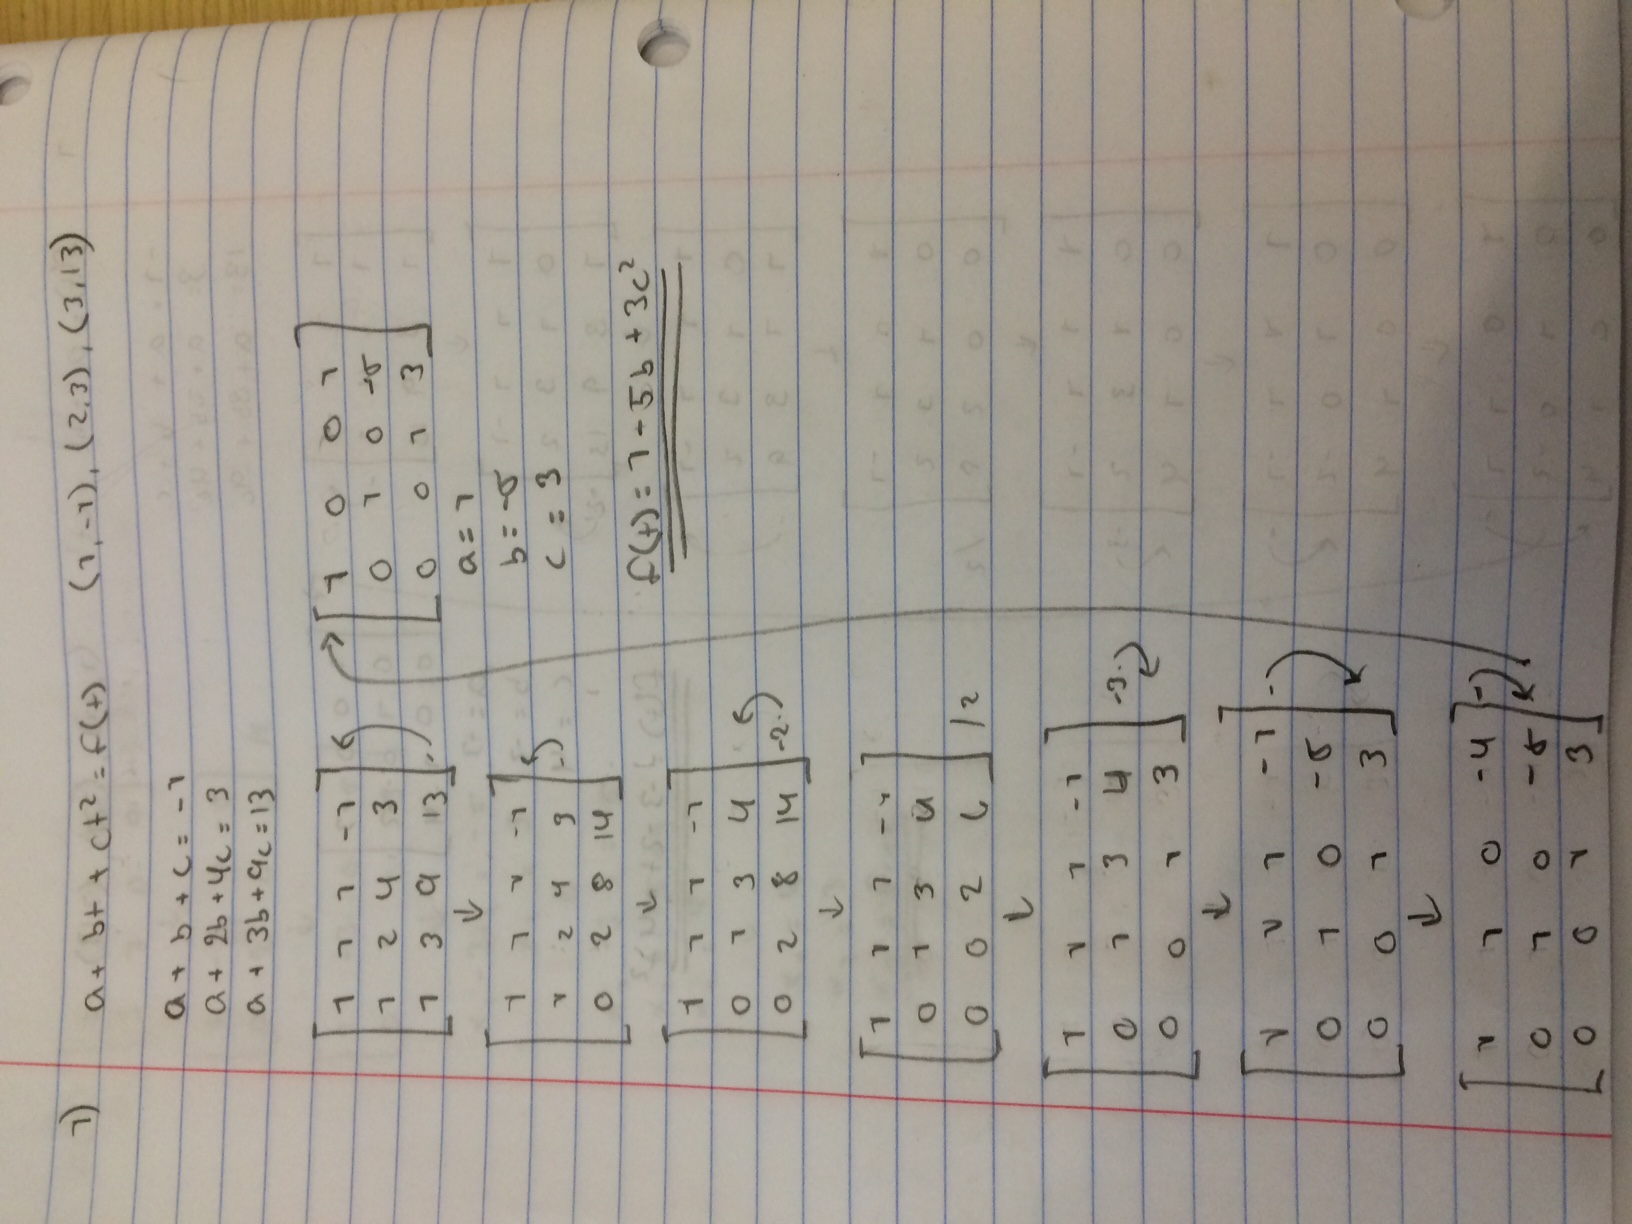 1) a + bt + ct² = f(t) (1,-1), (2,3), (3,13)
a + b + c = -1
a + 2b + 4c = 3
a + 3b + 9c = 13
1 1 1 -1
1 2 4 3
1 3 9 13 -
↓
1 1 1 -1
1 2 4 3 -
0 2 8 14
↓
1 1 1 -1
0 1 3 4
0 2 8 14 -2·
↓
1 1 1 -1
0 1 3 4
0 0 2 6 /2
↓
1 1 1 -1
0 1 3 4 -3·
0 0 1 3
↓
1 1 1 -1 -
0 1 0 -5
0 0 1 3
↓
1 1 0 -4 -
0 1 0 -5
0 0 1 3
1 0 0 1
0 1 0 -5
0 0 1 3
a = 1
b = -5
c = 3
f(t) = 1 - 5b + 3c²